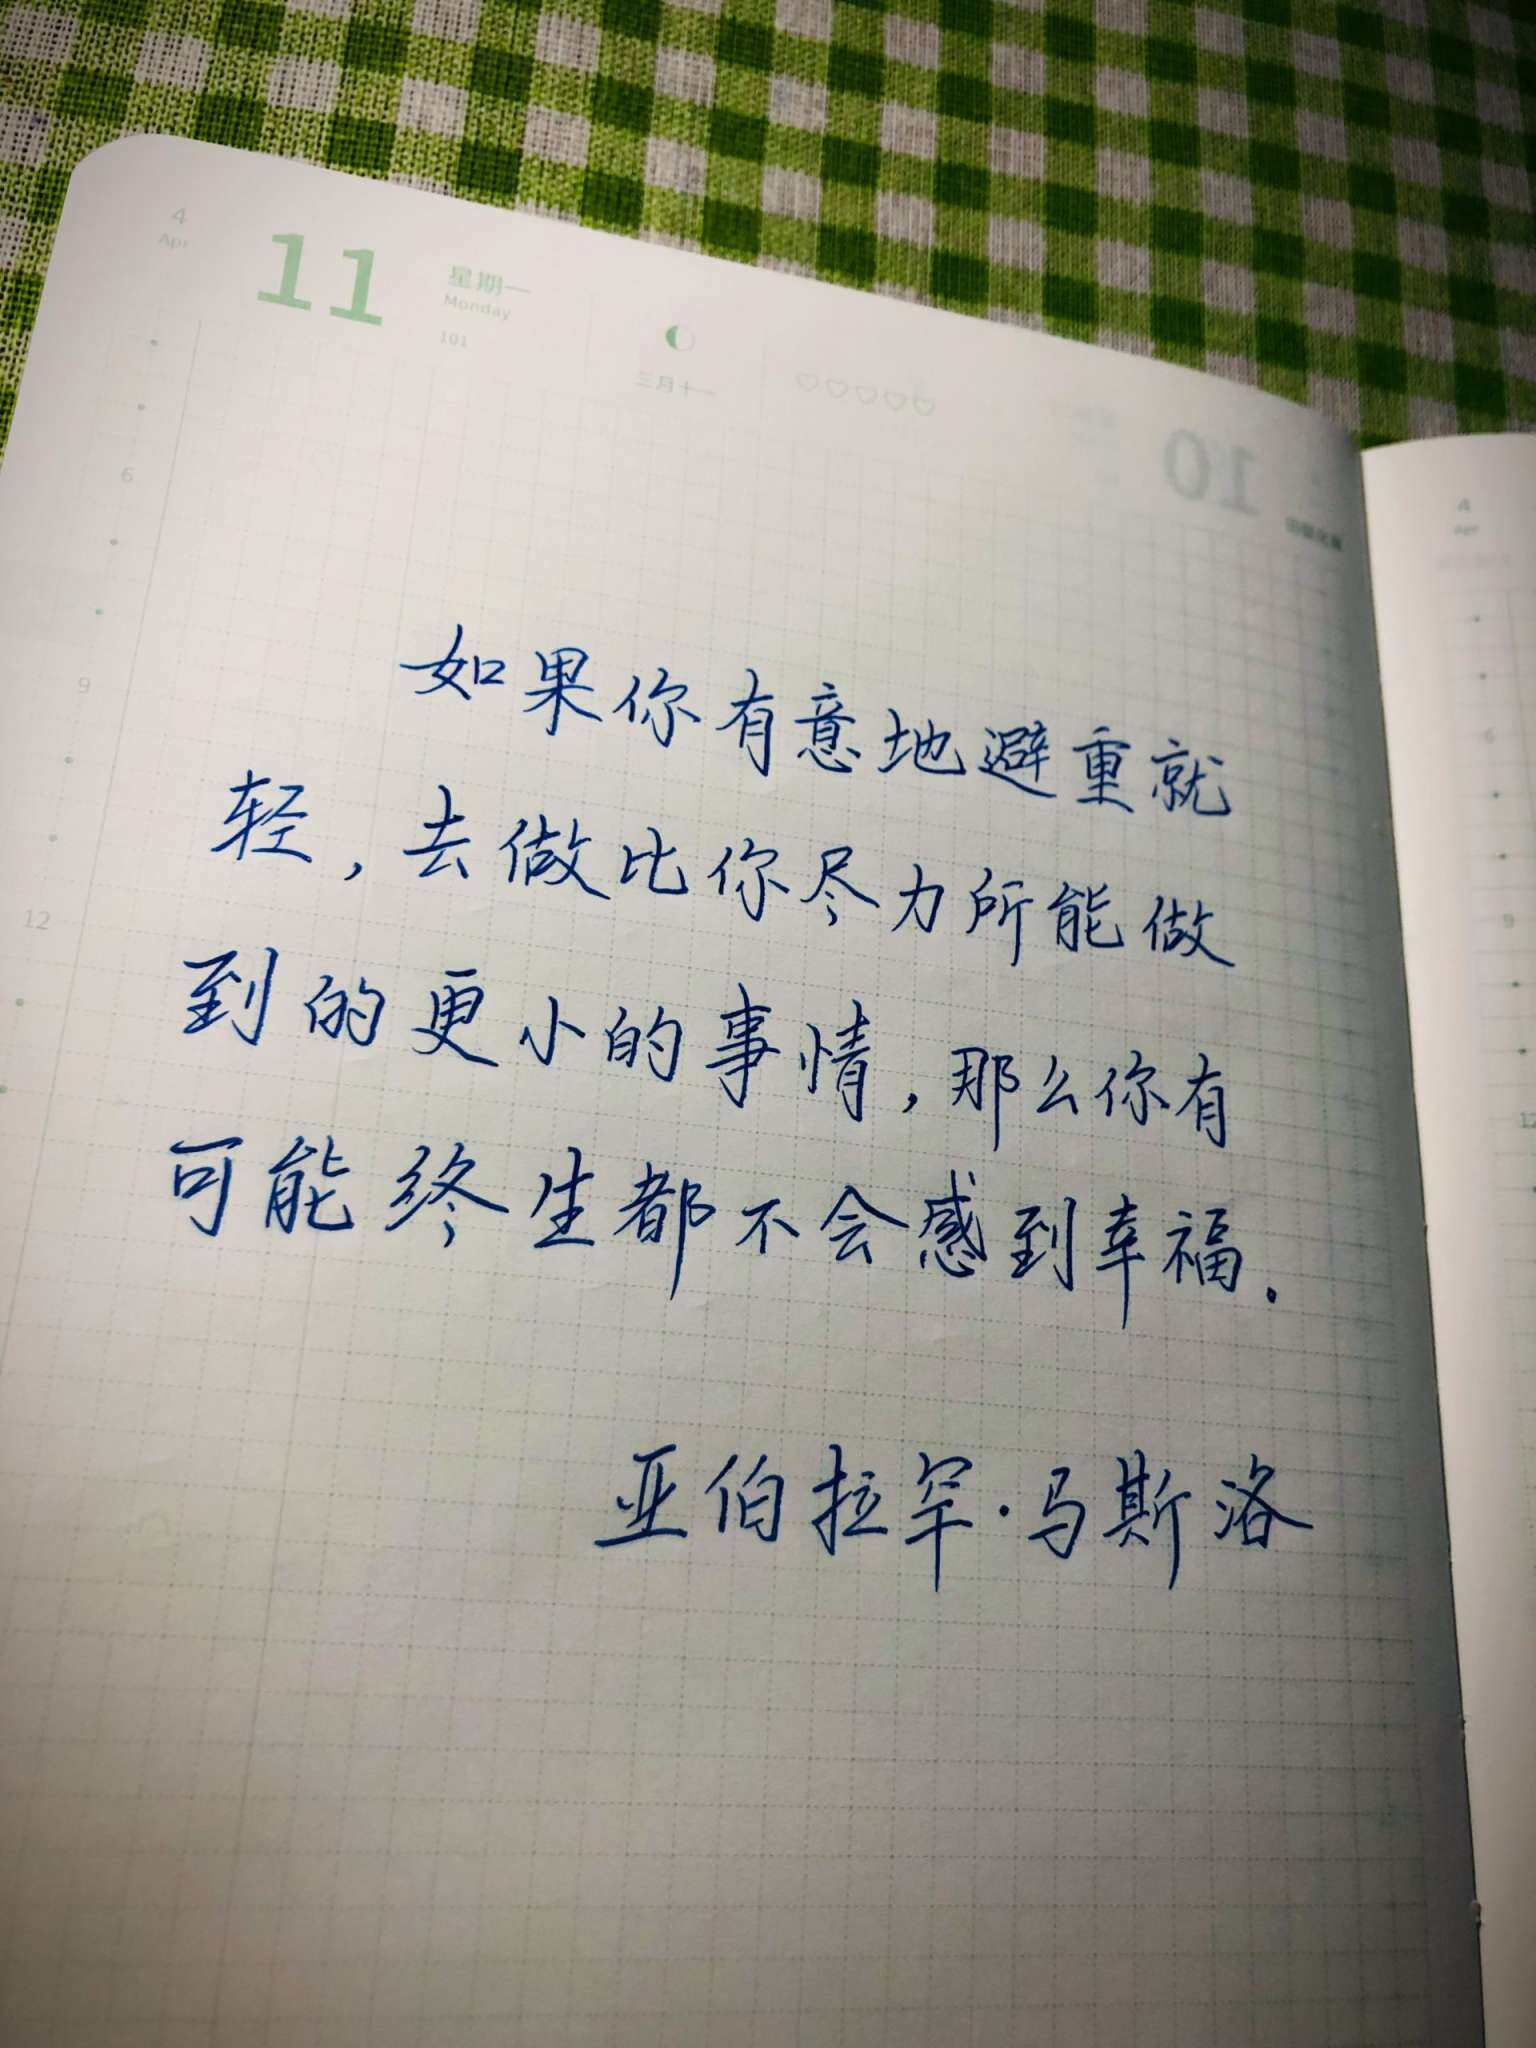 4
Apr
11
星期一
Monday
101
三月十一
10
6
9
12
如果你有意地避重就
轻，去做比你尽力所能做
到的更小的事情，那么你有
可能终生都不会感到幸福.
亚伯拉罕·马斯洛
4
Apr
6
9
12